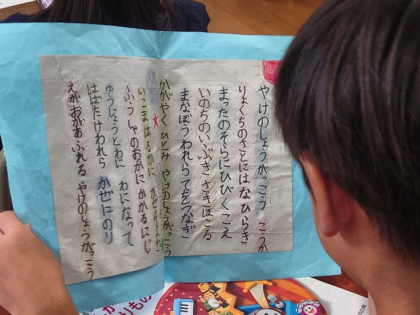 やけのしょうがっこう こうか
りょくちのさとにはなひらき
まったのそらにひびくこえ
いのちのいぶきさきほこる
まなぼうわれらてをつなぎ
かがやくひとみ やけのしょうがっこう
いこまはるかに
しょうのおかにかかるにじ
ゆうじょうとわに わになって
はばたけわれら かぜにのり
えがおがあふれる やけのしょうがっこう